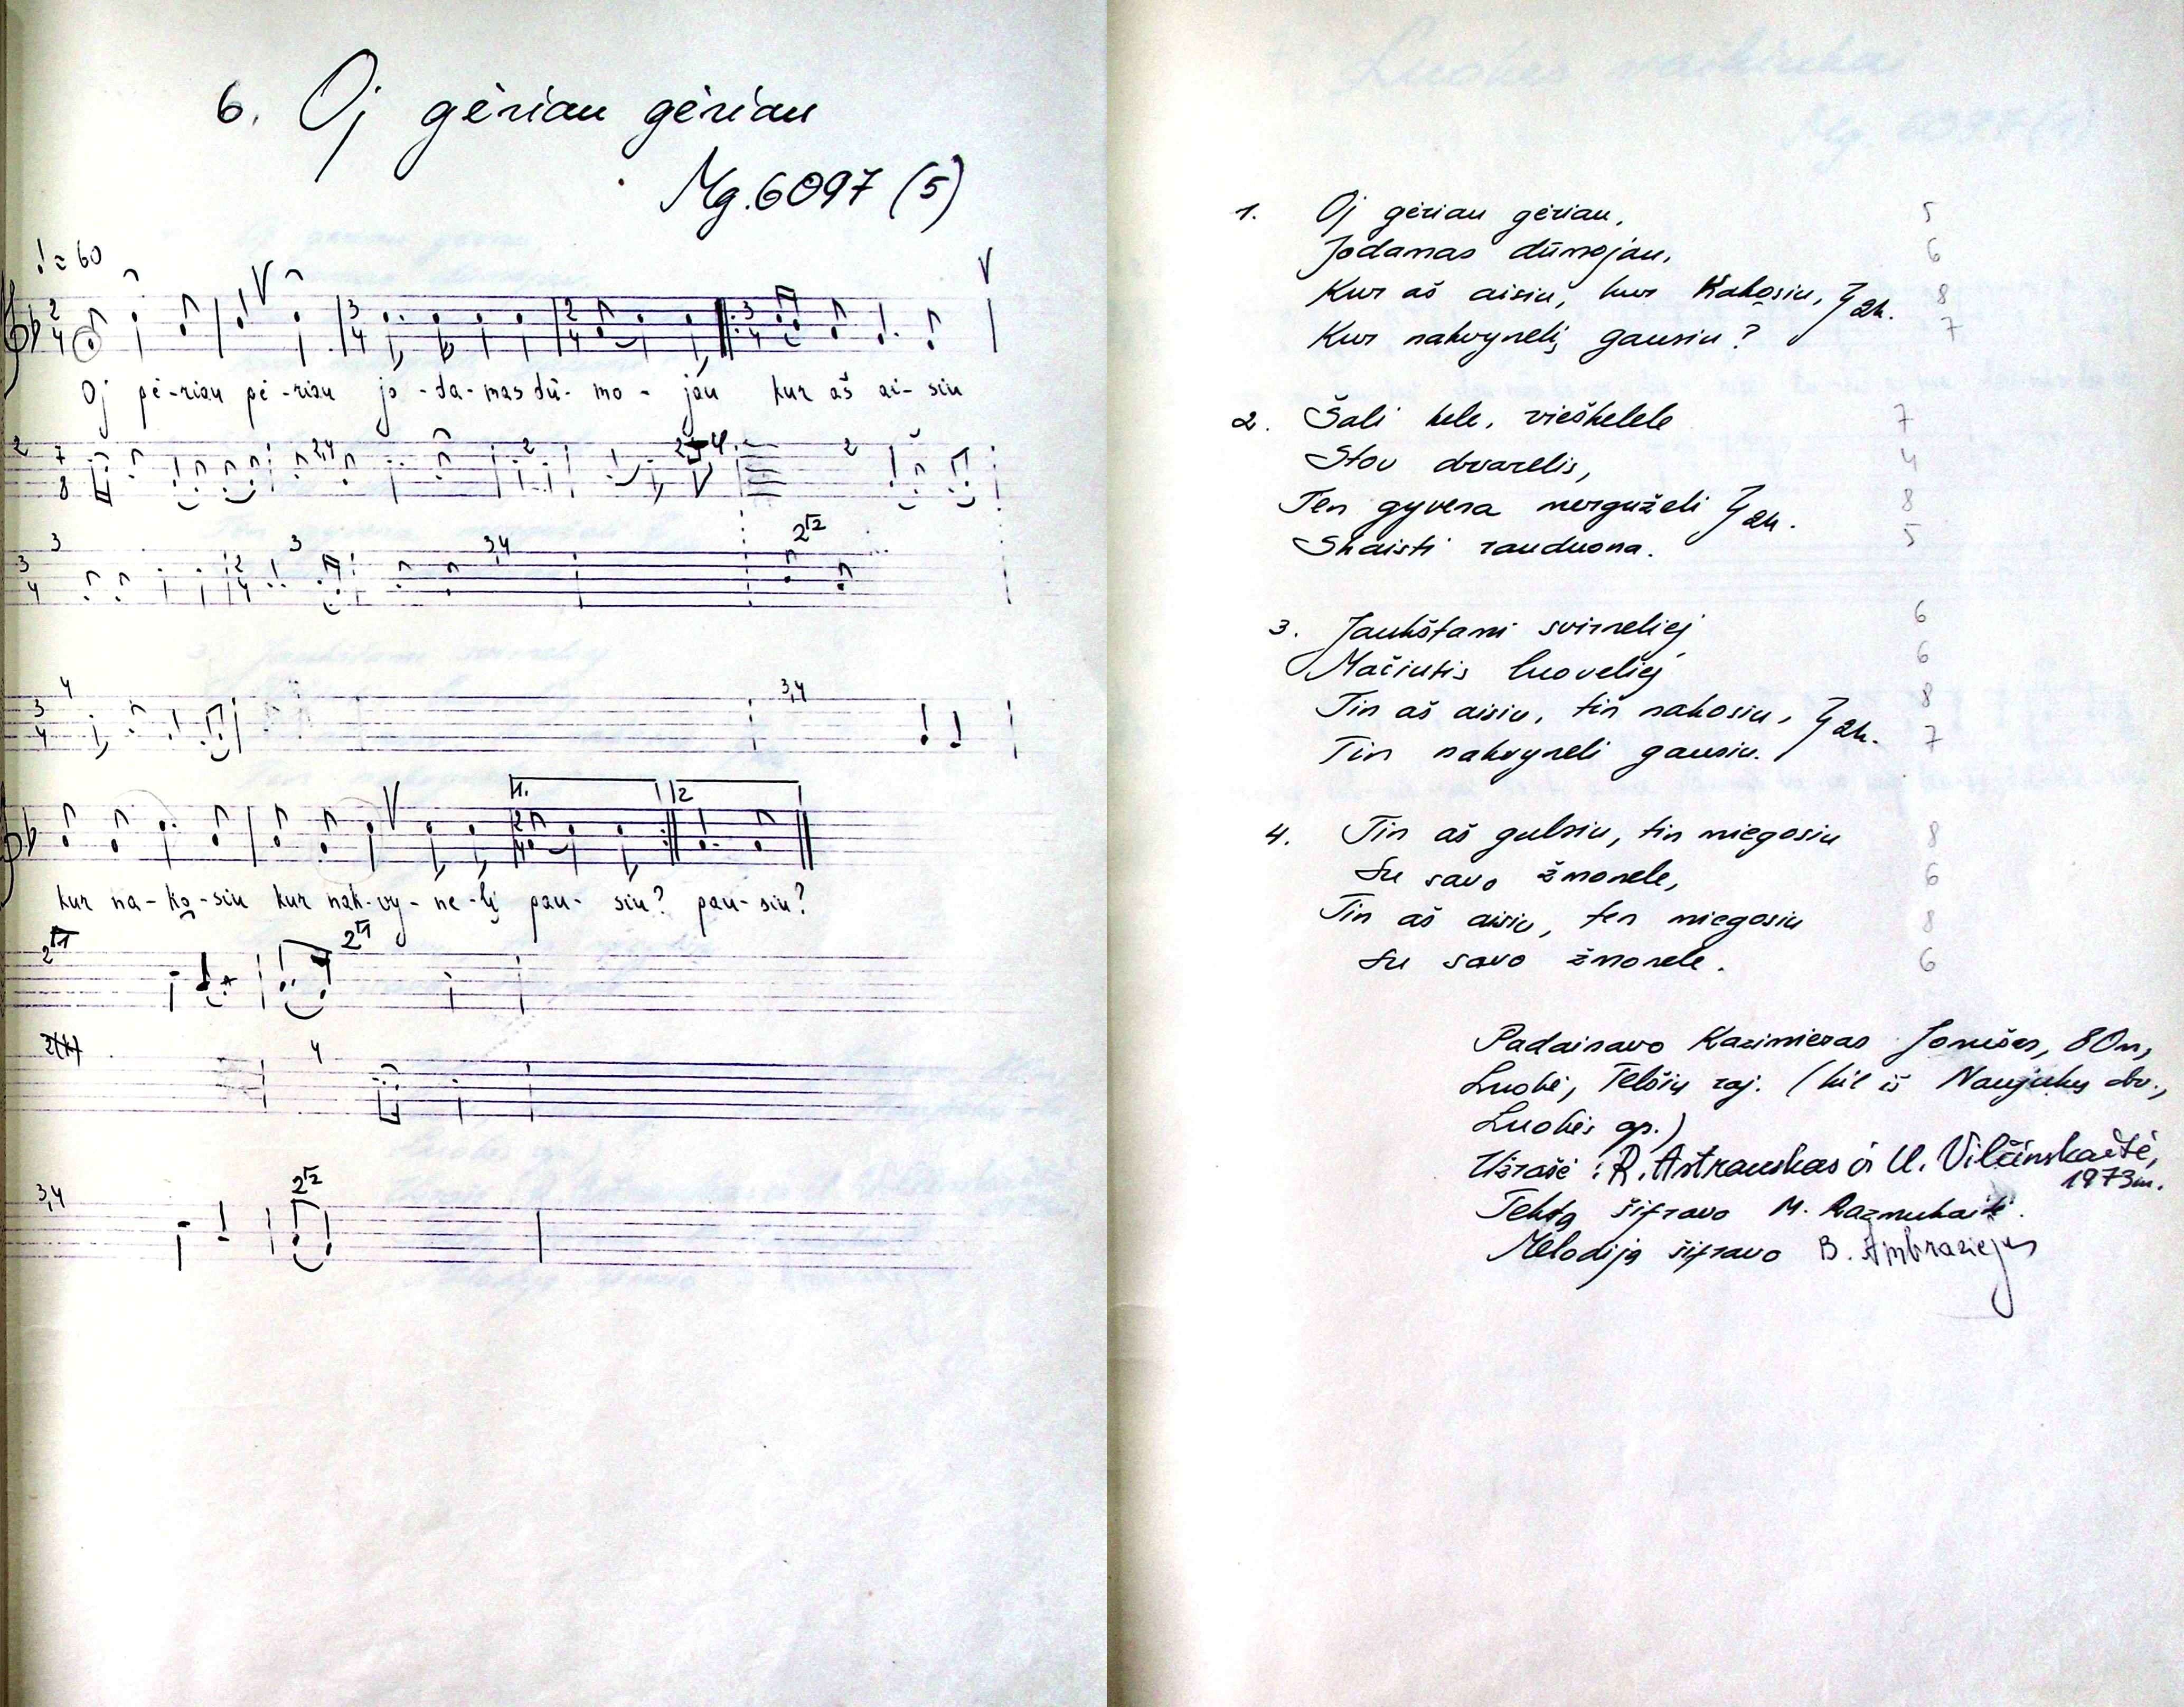 6. Oj gėriau gėriau
Mg. 6097 (5)
♩ = 60
Oj gė-riau gė-riau jo-da-mas dū-mo-jau kur aš ai-siu
kur na-ko-siu kur nak-vy-ne-lį gau-siu? gau-siu?
1. Oj gėriau gėriau, 5
Jodamas dūmojau, 6
Kur aš aisiu, kur nakosiu, } 2k. 8
Kur nakvynelį gausiu? 7
2. Šali kele, vieškelele 7
Stov dvarelis, 4
Ten gyvena merguželi } 2k. 8
Skaisti rauduona. 5
3. Jaukštami svirneliej 6
Mačiutis luoveliej 6
Tin aš aisiu, tin nakosiu, } 2k. 8
Tin nakvyneli gausiu. 7
4. Tin aš gulsiu, tin miegosiu 8
Su savo žmonele, 6
Tin aš aisiu, ten miegosiu 8
Su savo žmonele. 6
Padainavo Kazimieras 80m,
Luokė, Telšių raj. (kil iš Naujukų dv.,
Luokės ap.)
Užrašė: R. Astrauskas ir U. Vilčinskaitė,
1973m.
Tekstą šifravo M. Razmukaitė.
Melodiją šifravo B. Ambraziejus